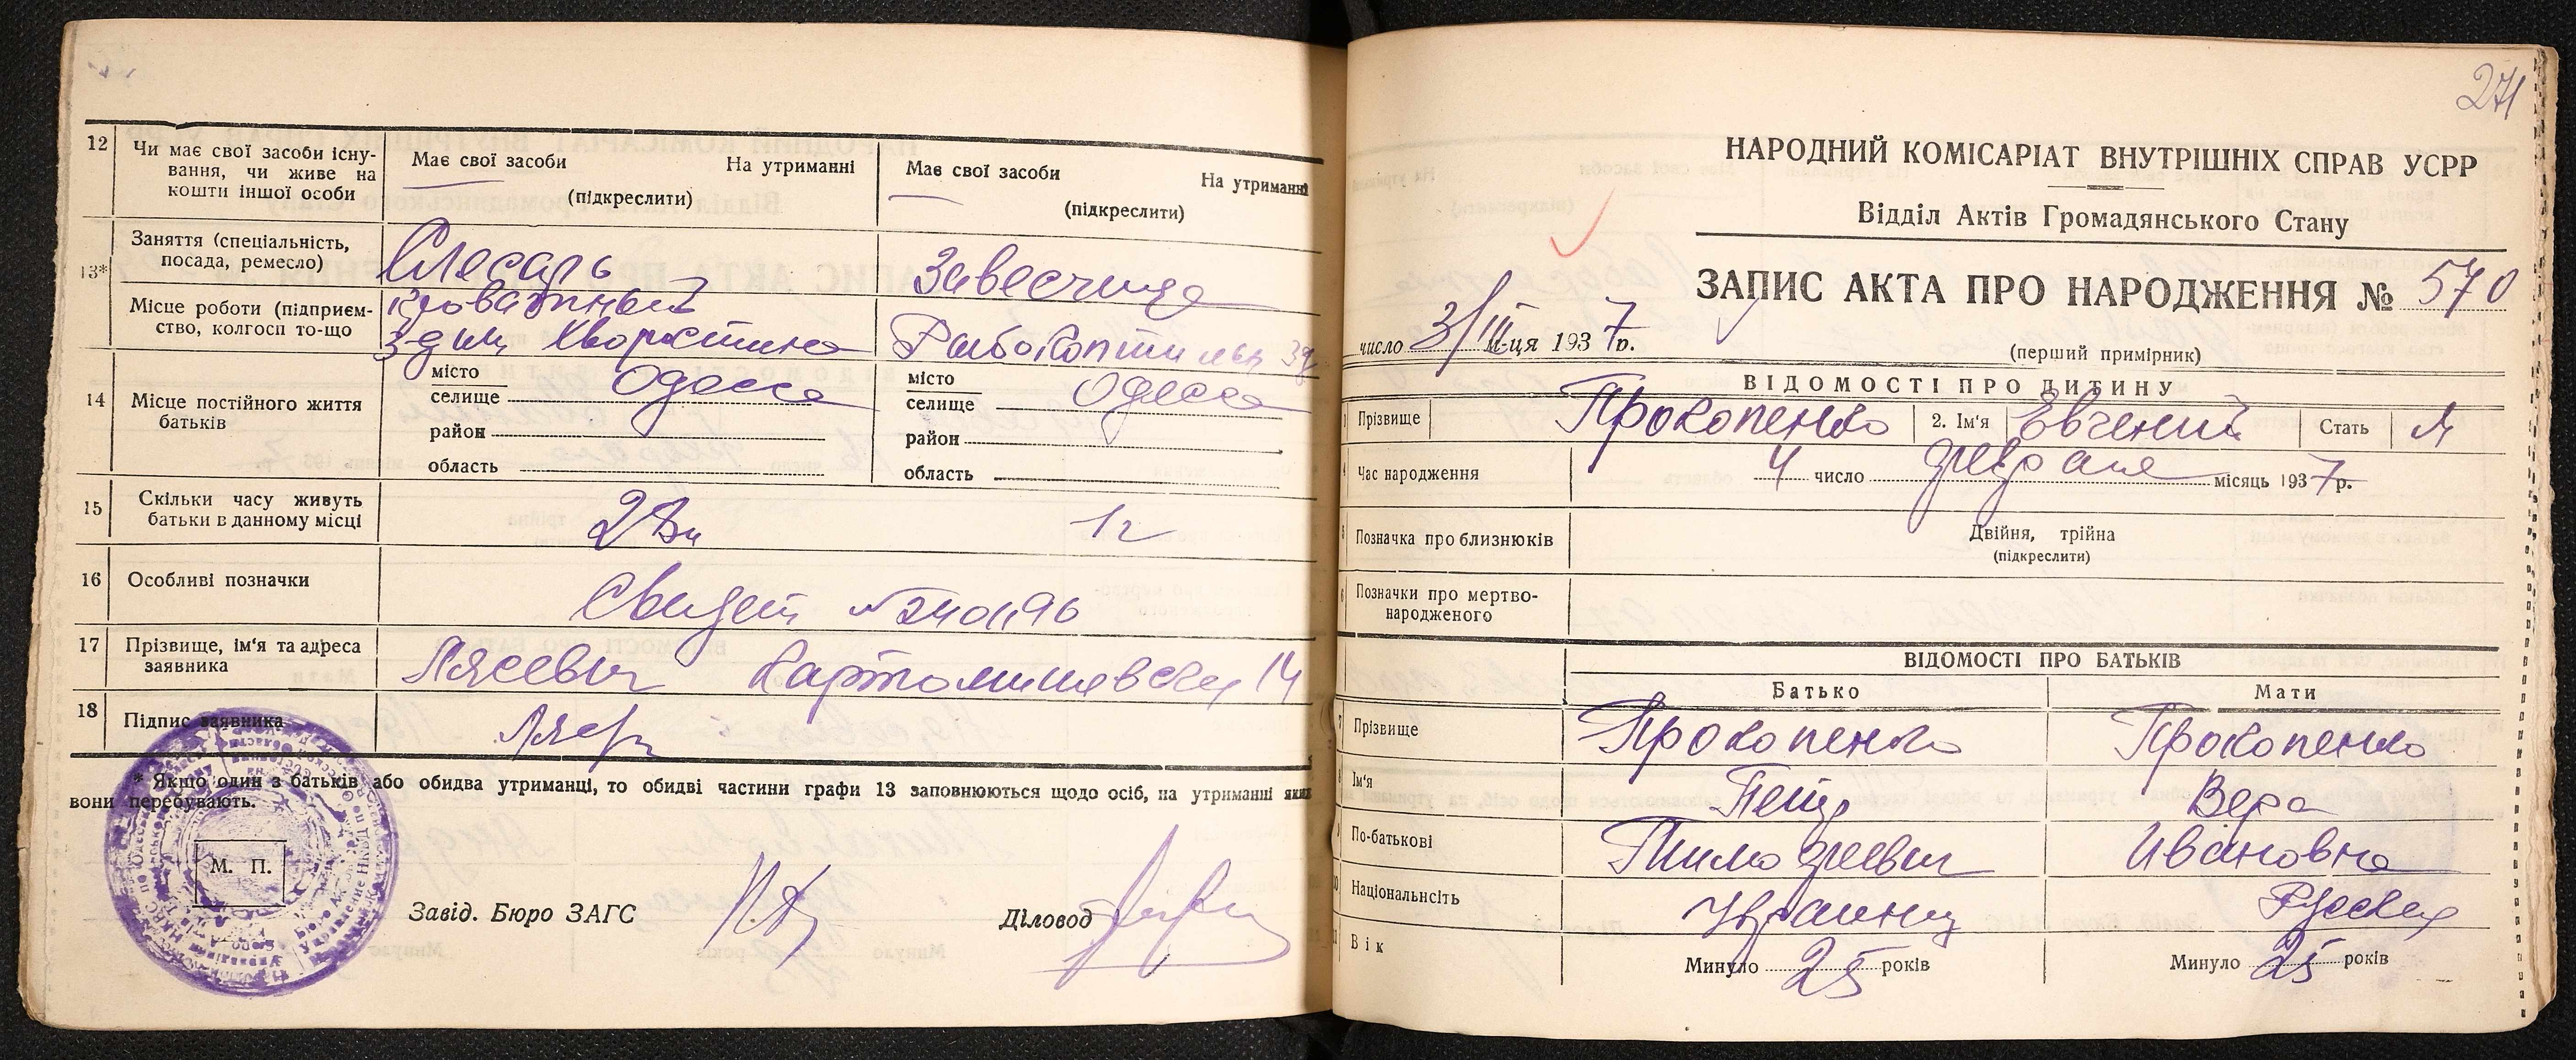 12 Чи має свої засоби існу-
вання, чи живе на
кошти іншої особи
Має свої засоби На утриманні
(підкреслити)
Має свої засоби На утриманні
(підкреслити)
13* Заняття (спеціальність,
посада, ремесло)
Слесарь
Завесчица
Місце роботи (підприєм-
ство, колгосп то-що
Кроватный
З-д им Хворостина
Рыбокоптильн зд
14 Місце постійного життя
батьків
місто
селище Одесса
район
область
місто
селище Одесса
район
область
15 Скільки часу живуть
батьки в данному місці
1г
16 Особливі позначки
Свидет №
17 Прізвище, ім'я та адреса
заявника
Картамышевская 14
18 Підпис заявника
* Якщо один з батьків або обидва утриманці, то обидві частини графи 13 заповнюються щодо осіб, на утриманні яких
вони перебувають.
М. П.
Завід. Бюро ЗАГС
Діловод
271
НАРОДНИЙ КОМІСАРІАТ ВНУТРІШНІХ СПРАВ УСРР
Відділ Актів Громадянського Стану
ЗАПИС АКТА ПРО НАРОДЖЕННЯ № 570
число 3/III-ця 1937р.
(перший примірник)
ВІДОМОСТІ ПРО ДИТИНУ
1 Прізвище Прокопенко 2. Ім'я Евгений Стать М
4 Час народження 4 число февраля місяць 1937р.
5 Позначка про близнюків Двійня, трійна
(підкреслити)
6 Позначки про мертво-
народженого
ВІДОМОСТІ ПРО БАТЬКІВ
Батько Мати
7 Прізвище Прокопенко Прокопенко
8 Ім'я Петр Вера
9 По-батькові Тимофеевич Ивановна
10 Національність Украинец Русская
11 Вік Минуло 25 років Минуло 25 років